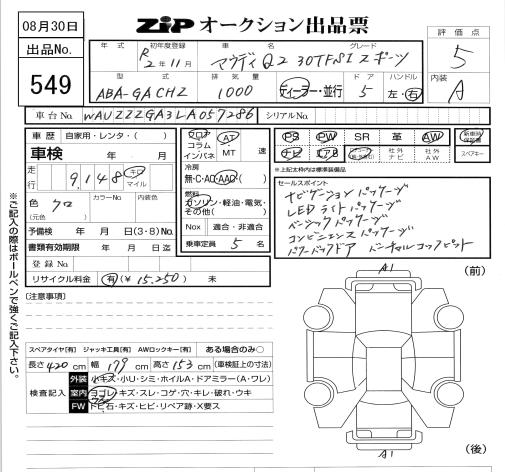 08月30日
ZIP オークション出品票
出品No.
549
年式 初年度登録 車名 グレード
R2年11月 アウディQ2 30TFSI スポーツ
型式 排気量 ドア ハンドル
ABA-GACHZ 1000 ディーラー・並行 5 左・右
評価点
5
内装
A
車台No. WAUZZZGA3LA057286 シリアルNo.
車歴 自家用・レンタ・( )
車検 年 月
走行 9,148 キロ マイル
色 クロ (元色) カラーNo. 内装色
予備検 年 月 日(3・8)No.
書類有効期限 年 月 日迄
登録No.
リサイクル料金 有(¥15,250) 未
フロア コラム インパネ AT・MT 速
冷房
無・C・AC・AAC( )
燃料
ガソリン・軽油・電気・その他( )
Nox 適合・非適合
乗車定員 5 名
PS PW SR 革 AW 新車時保証書
ナビ エアB 社外ナビ 社外AW スペアキー
*上記太枠内は標準装備品
セールスポイント
ナビゲーション パッケージ
LEDライト パッケージ
ベーシック パッケージ
コンビニエンス パッケージ
パワーバックドア バーチャルコックピット
※ご記入の際はボールペンで強くご記入下さい。
[注意事項]
スペアタイヤ[有] ジャッキ工具[有] AWロックキー[有] ある場合のみ○
長さ 420 cm 幅 179 cm 高さ 153 cm (車検証上の寸法)
検査記入
外装 小キズ・小U・シミ・ホイルA・ドアミラー(A・ワレ)
室内 ヨゴレ・キズ・スレ・コゲ・穴・キレ・破れ・ウキ
FW トビ石・キズ・ヒビ・リペア跡・X要ス
A1
(前)
A1
(後)